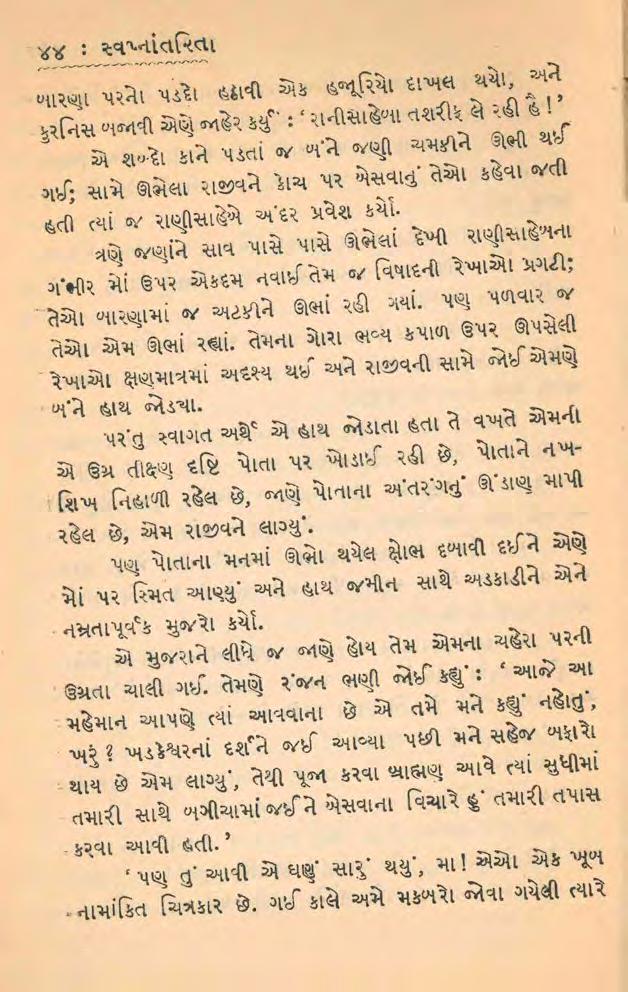 ૪૪ : સ્વપ્નાંતરિતા
બારણા પરનો પડદો હઠાવી એક હજૂરિયો દાખલ થયો, અને
કુરનિસ બજાવી એણે જાહેર કર્યું : ‘રાનીસાહેબા તશરીફ લે રહી હૈ !’
એ શબ્દો કાને પડતાં જ બંને જણી ચમકીને ઊભી થઈ
ગઈ; સામે ઊભેલા રાજીવને કોચ પર બેસવાનું તેઓ કહેવા જતી
હતી ત્યાં જ રાણીસાહેબે અંદર પ્રવેશ કર્યો.
ત્રણે જણાંને સાવ પાસે પાસે ઊભેલાં દેખી રાણીસાહેબના
ગંભીર મોં ઉપર એકદમ નવાઈ તેમ જ વિષાદની રેખાઓ પ્રગટી;
તેઓ બારણામાં જ અટકીને ઊભાં રહી ગયાં. પણ પળવાર જ
તેઓ એમ ઊભાં રહ્યાં. તેમના ગોરા ભવ્ય કપાળ ઉપર ઊપસેલી
રેખાઓ ક્ષણમાત્રમાં અદૃશ્ય થઈ અને રાજીવની સામે જોઈ એમણે
બંને હાથ જોડ્યા.
પરંતુ સ્વાગત અર્થે એ હાથ જોડાતા હતા તે વખતે એમની
એ ઉગ્ર તીક્ષ્ણ દૃષ્ટિ પોતા પર ખોડાઈ રહી છે, પોતાને નખ-
શિખ નિહાળી રહેલ છે, જાણે પોતાના અંતરંગનું ઊંડાણ માપી
રહેલ છે, એમ રાજીવને લાગ્યું.
પણ પોતાના મનમાં ઊભો થયેલ ક્ષોભ દબાવી દઈને એણે
મોં પર સ્મિત આણ્યું અને હાથ જમીન સાથે અડકાડીને એને
નમ્રતાપૂર્વક મુજરો કર્યો.
એ મુજરાને લીધે જ જાણે હોય તેમ એમના ચહેરા પરની
ઉગ્રતા ચાલી ગઈ. તેમણે રંજન ભણી જોઈ કહ્યું : ‘આજે આ
મહેમાન આપણે ત્યાં આવવાના છે એ તમે મને કહ્યું નહોતું,
ખરું ? ખડકેશ્વરનાં દર્શને જઈ આવ્યા પછી મને સહેજ બફારો
થાય છે એમ લાગ્યું, તેથી પૂજા કરવા બ્રાહ્મણ આવે ત્યાં સુધીમાં
તમારી સાથે બગીચામાં જઈને બેસવાના વિચારે હું તમારી તપાસ
કરવા આવી હતી.’
‘પણ તું આવી એ ઘણું સારું થયું, મા! એઓ એક ખૂબ
નામાંકિત ચિત્રકાર છે. ગઈ કાલે અમે મકબરો જોવા ગયેલી ત્યારે